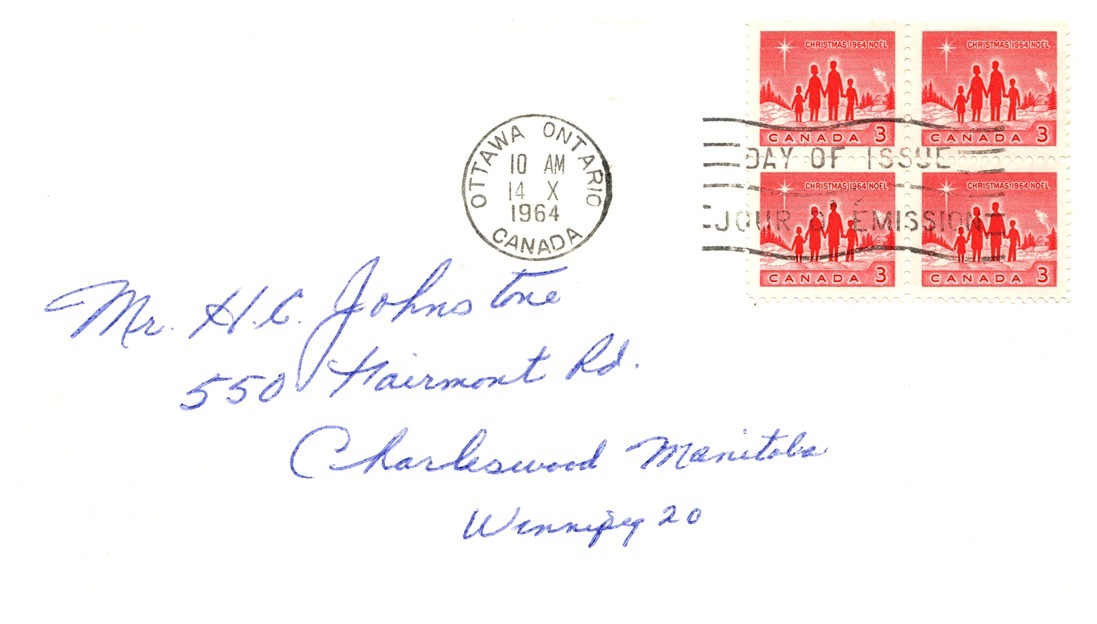 CHRISTMAS 1964 NOËL
CANADA 3
CHRISTMAS 1964 NOËL
CANADA 3
CHRISTMAS 1964 NOËL
CANADA 3
CHRISTMAS 1964 NOËL
CANADA 3
OTTAWA ONTARIO
10 AM
14 X
1964
CANADA
DAY OF ISSUE
JOUR D'ÉMISSION
Mr. H.C. Johnstone
550 Fairmont Rd.
Charleswood Manitoba
Winnipeg 20